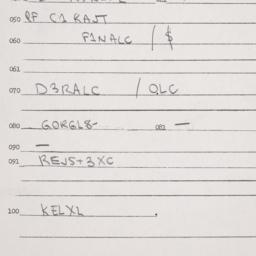 050 RF C1 RAJT
060 F1NALC / $
061
070 D3RALC / QLC
080 GORGL8- 082 —
090 —
091 REJ5+3XC
100 KELXL .